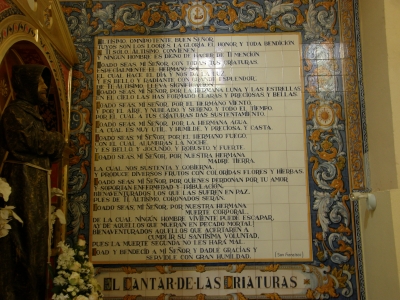 ALTISIMO, OMNIPOTENTE, BUEN SEÑOR,
TUYOS SON LOS LOORES, LA GLORIA, EL HONOR Y TODA BENDICION.
A TI SOLO, ALTISIMO, CONVIENEN
Y NINGUN HOMBRE ES DIGNO DE HACER DE TI MENCION.
LOADO SEAS, MI SEÑOR, CON TODAS TUS CRIATURAS,
ESPECIALMENTE EL HERMANO SOL,
EL CUAL HACE EL DIA Y NOS DA LA LUZ.
Y ES BELLO Y RADIANTE CON GRANDE ESPLENDOR,
DE TI, ALTISIMO, LLEVA SIGNIFICACION.
LOADO SEAS, MI SEÑOR, POR LA HERMANA LUNA Y LAS ESTRELLAS,
EN EL CIELO LAS HAS FORMADO CLARAS Y PRECIOSAS Y BELLAS.
LOADO SEAS, MI SEÑOR, POR EL HERMANO VIENTO,
Y POR EL AIRE Y NUBLADO Y SERENO Y TODO TIEMPO,
POR EL CUAL A TUS CRIATURAS DAS SUSTENTAMIENTO.
LOADO SEAS, MI SEÑOR, POR LA HERMANA AGUA,
LA CUAL ES MUY UTIL, Y HUMILDE Y PRECIOSA, Y CASTA.
LOADO SEAS, MI SEÑOR, POR EL HERMANO FUEGO,
CON EL CUAL ALUMBRAS LA NOCHE
Y ES BELLO Y JOCUNDO, Y ROBUSTO Y FUERTE.
LOADO SEAS, MI SEÑOR, POR NUESTRA HERMANA
MADRE TIERRA,
LA CUAL NOS SUSTENTA Y GOBIERNA
Y PRODUCE DIVERSOS FRUTOS CON COLORIDAS FLORES Y HIERBAS.
LOADO SEAS, MI SEÑOR, POR QUIENES PERDONAN POR TU AMOR
Y SOPORTAN ENFERMEDAD Y TRIBULACION.
BIENAVENTURADOS LOS QUE LAS SUFREN EN PAZ,
PUES DE TI, ALTISIMO, CORONADOS SERAN.
LOADO SEAS, MI SEÑOR, POR NUESTRA HERMANA
MUERTE CORPORAL,
DE LA CUAL NINGUN HOMBRE VIVIENTE PUEDE ESCAPAR,
¡AY DE AQUELLOS QUE MUERAN EN PECADO MORTAL!
BIENAVENTURADOS AQUELLOS QUE ACERTAREN A
CUMPLIR SU SANTISIMA VOLUNTAD,
PUES LA MUERTE SEGUNDA NO LES HARA MAL.
LOAD Y BENDECID A MI SEÑOR Y DADLE GRACIAS Y
SERVIDLE CON GRAN HUMILDAD.
EL CANTAR·DE·LAS CRIATURAS